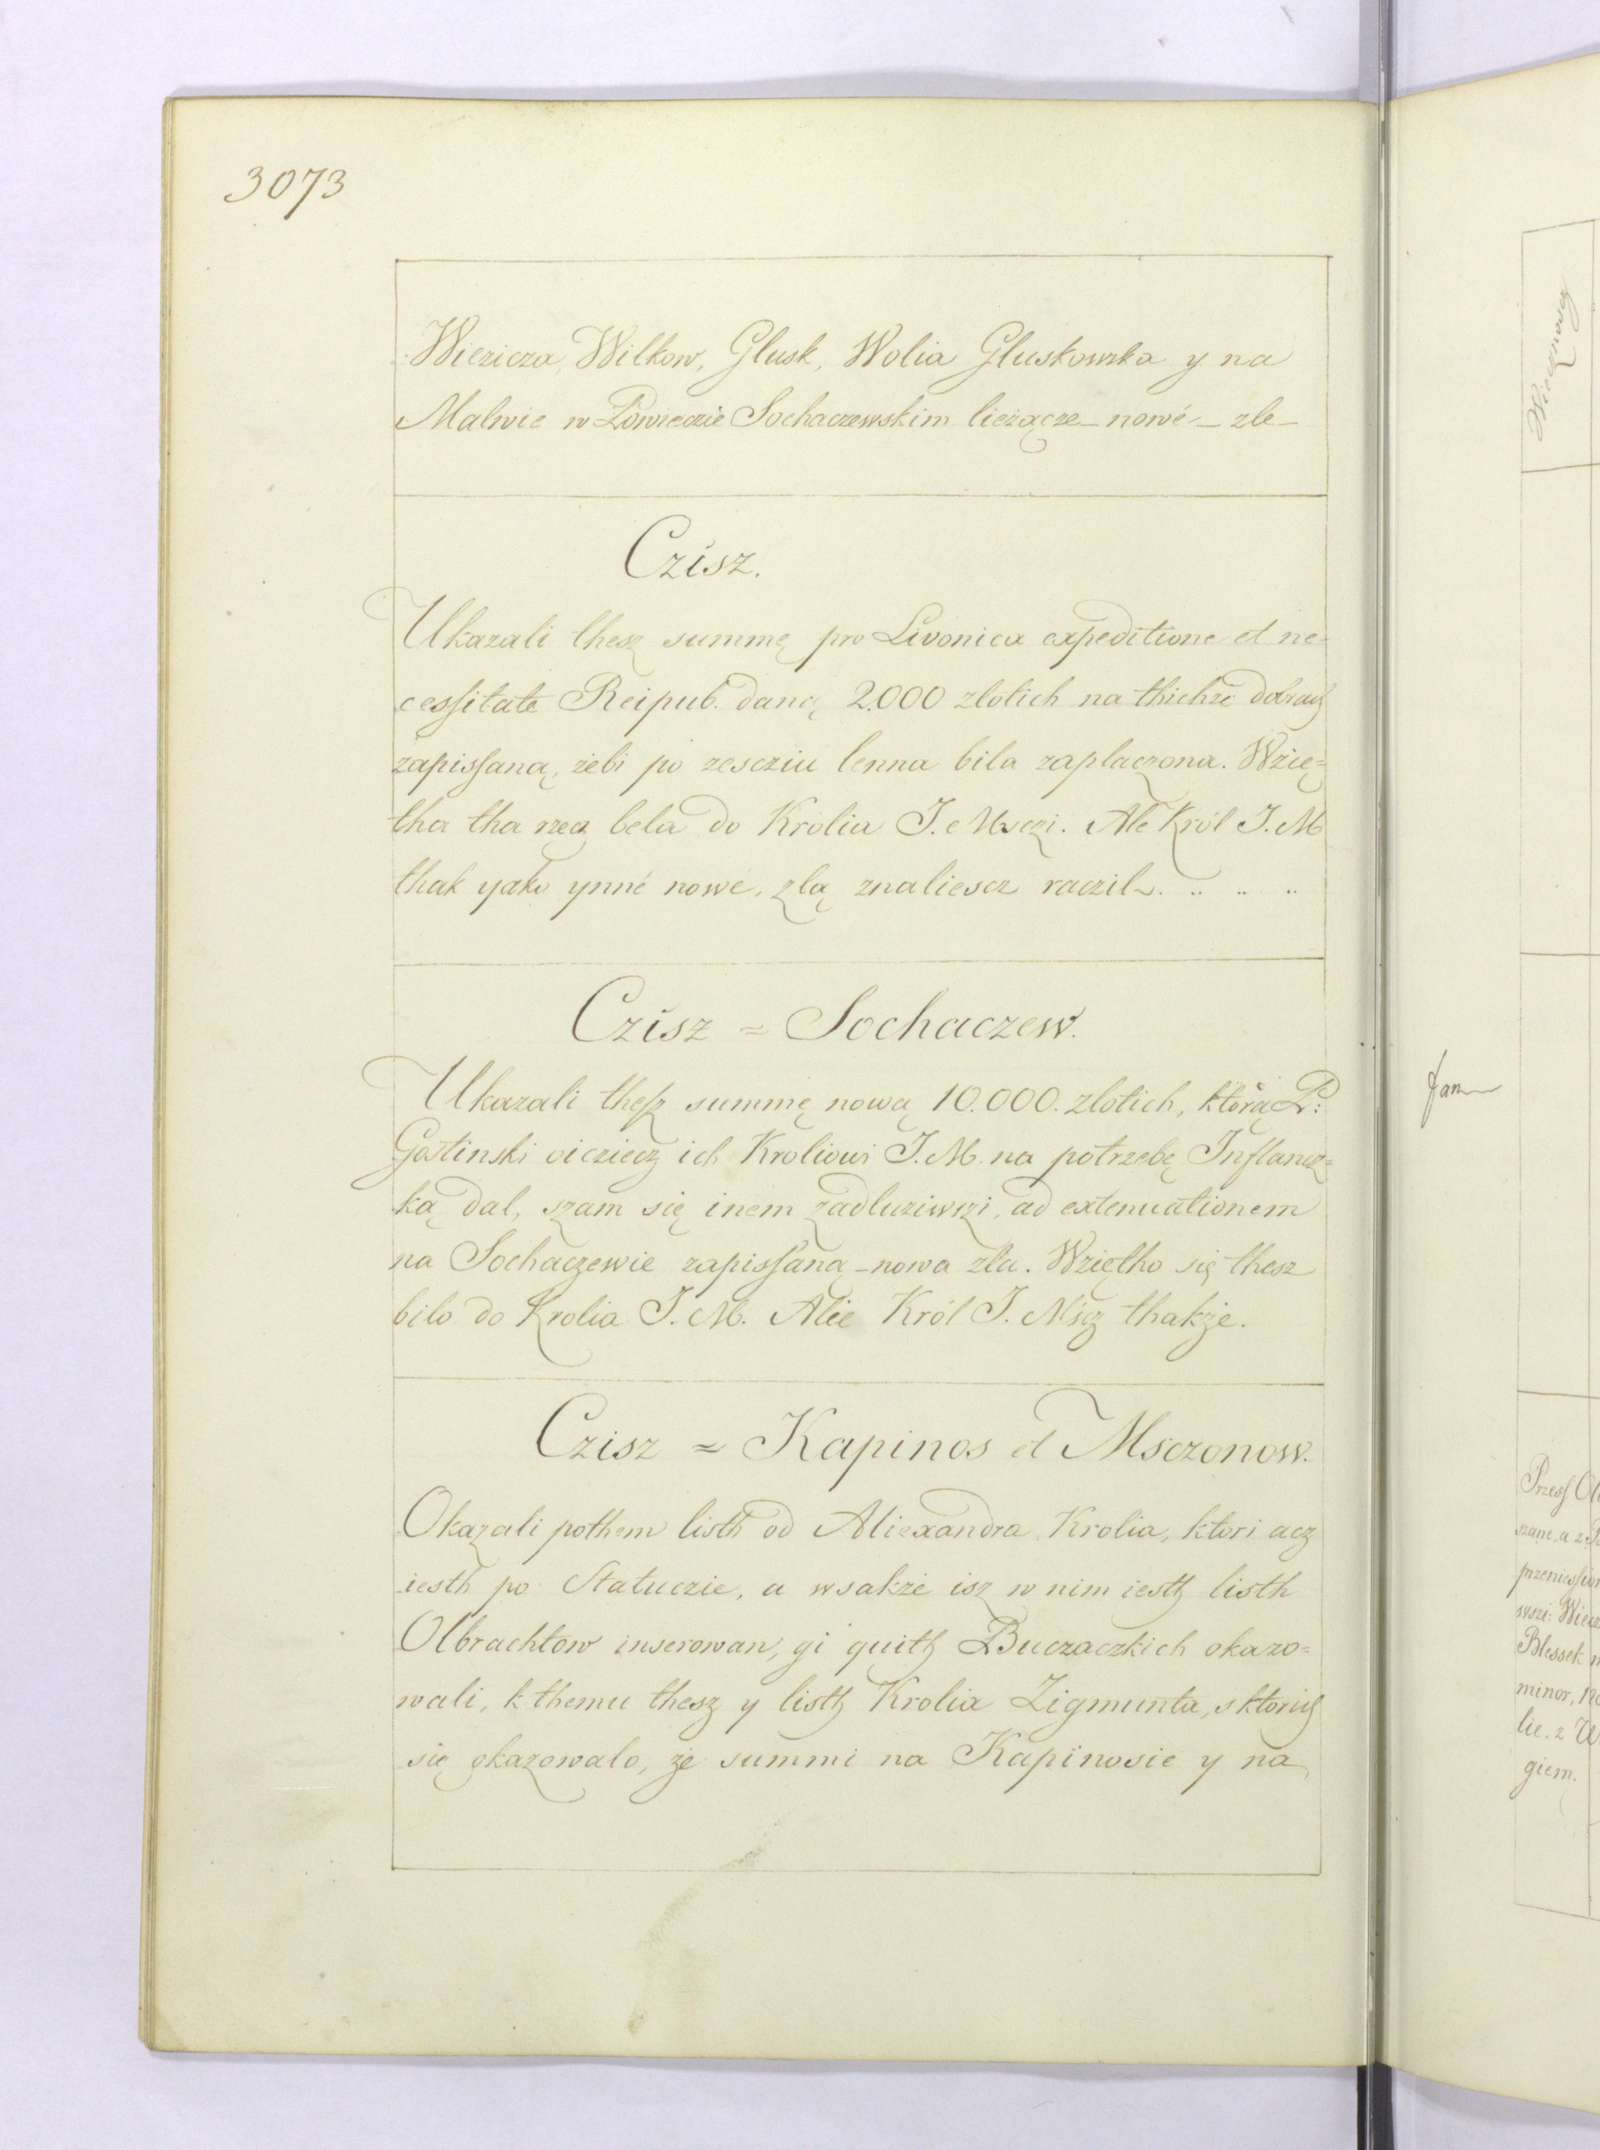 3073
Wiezicza, Wilkow, Glusk, Wolia Gluskowska y na
Malwie w Powieczie Sochaczewskim liezącze _ nowé _ zle _
Czisz.
Ukazali thesz summę pro Livonica expeditione et ne-
cessitate Reipub. daną 2.000 zlotich na thichże dobrach
zapissaną, żebi po zescziu lenna bila zaplaczona. Wzię-
tha tha rzecz bela do Krolia J. Msczi. Ale Król J. M
thak yako ynné nowé, zlą znaliescz raczil. .. .. ..
Czisz = Sochaczew.
Ukazali thesz summę nową 10.000. zlotich, którą P:
Gostinski oicziecz ich Kroliowi J. M. na potrzebę Inflancz=
ką dal, szam się inem zadluziwszi, ad extenuationem
na Sochaczewie zapissaną _ nowa zla. Wziętho się thesz
bilo do Krolia J. M. Alie Król J. Mścz thakże.
Czisz = Kapinos et Msczonow.
Okazali pothem listh od Aliexandra Krolia, ktori acz
iesth po Statuczie, a wsakże isz w nim iesth listh
Olbrachtow inserowan, gi quith Buczaczkich okazo=
wali, k themu thesz y listh Krolia Zigmunta, s ktorich
się okazowalo, że summi na Kapinosie y na
Przess
minor,
giem.